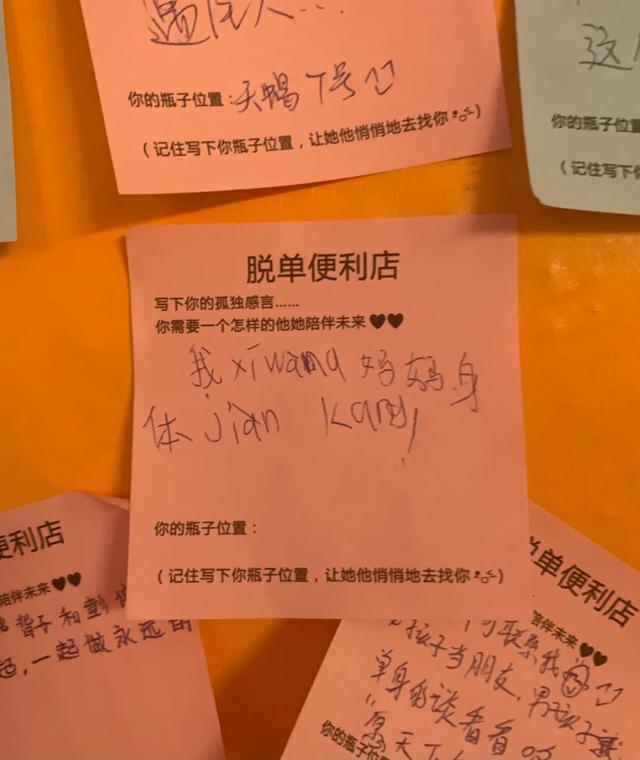 你的瓶子位置：天蝎7号
（记住写下你瓶子位置，让她他悄悄地去找你
这
你的瓶子位置
（记住写下你
脱单便利店
写下你的孤独感言……
你需要一个怎样的他她陪伴未来♥♥
我xiwang妈妈身
体jian kang
你的瓶子位置：
（记住写下你瓶子位置，让她他悄悄地去找你
便利店
陪伴未来♥♥
一起做永远的
单便利店
陪伴未来♥♥
孩子当朋友，男孩子就
单身的谈看看
你的瓶子位